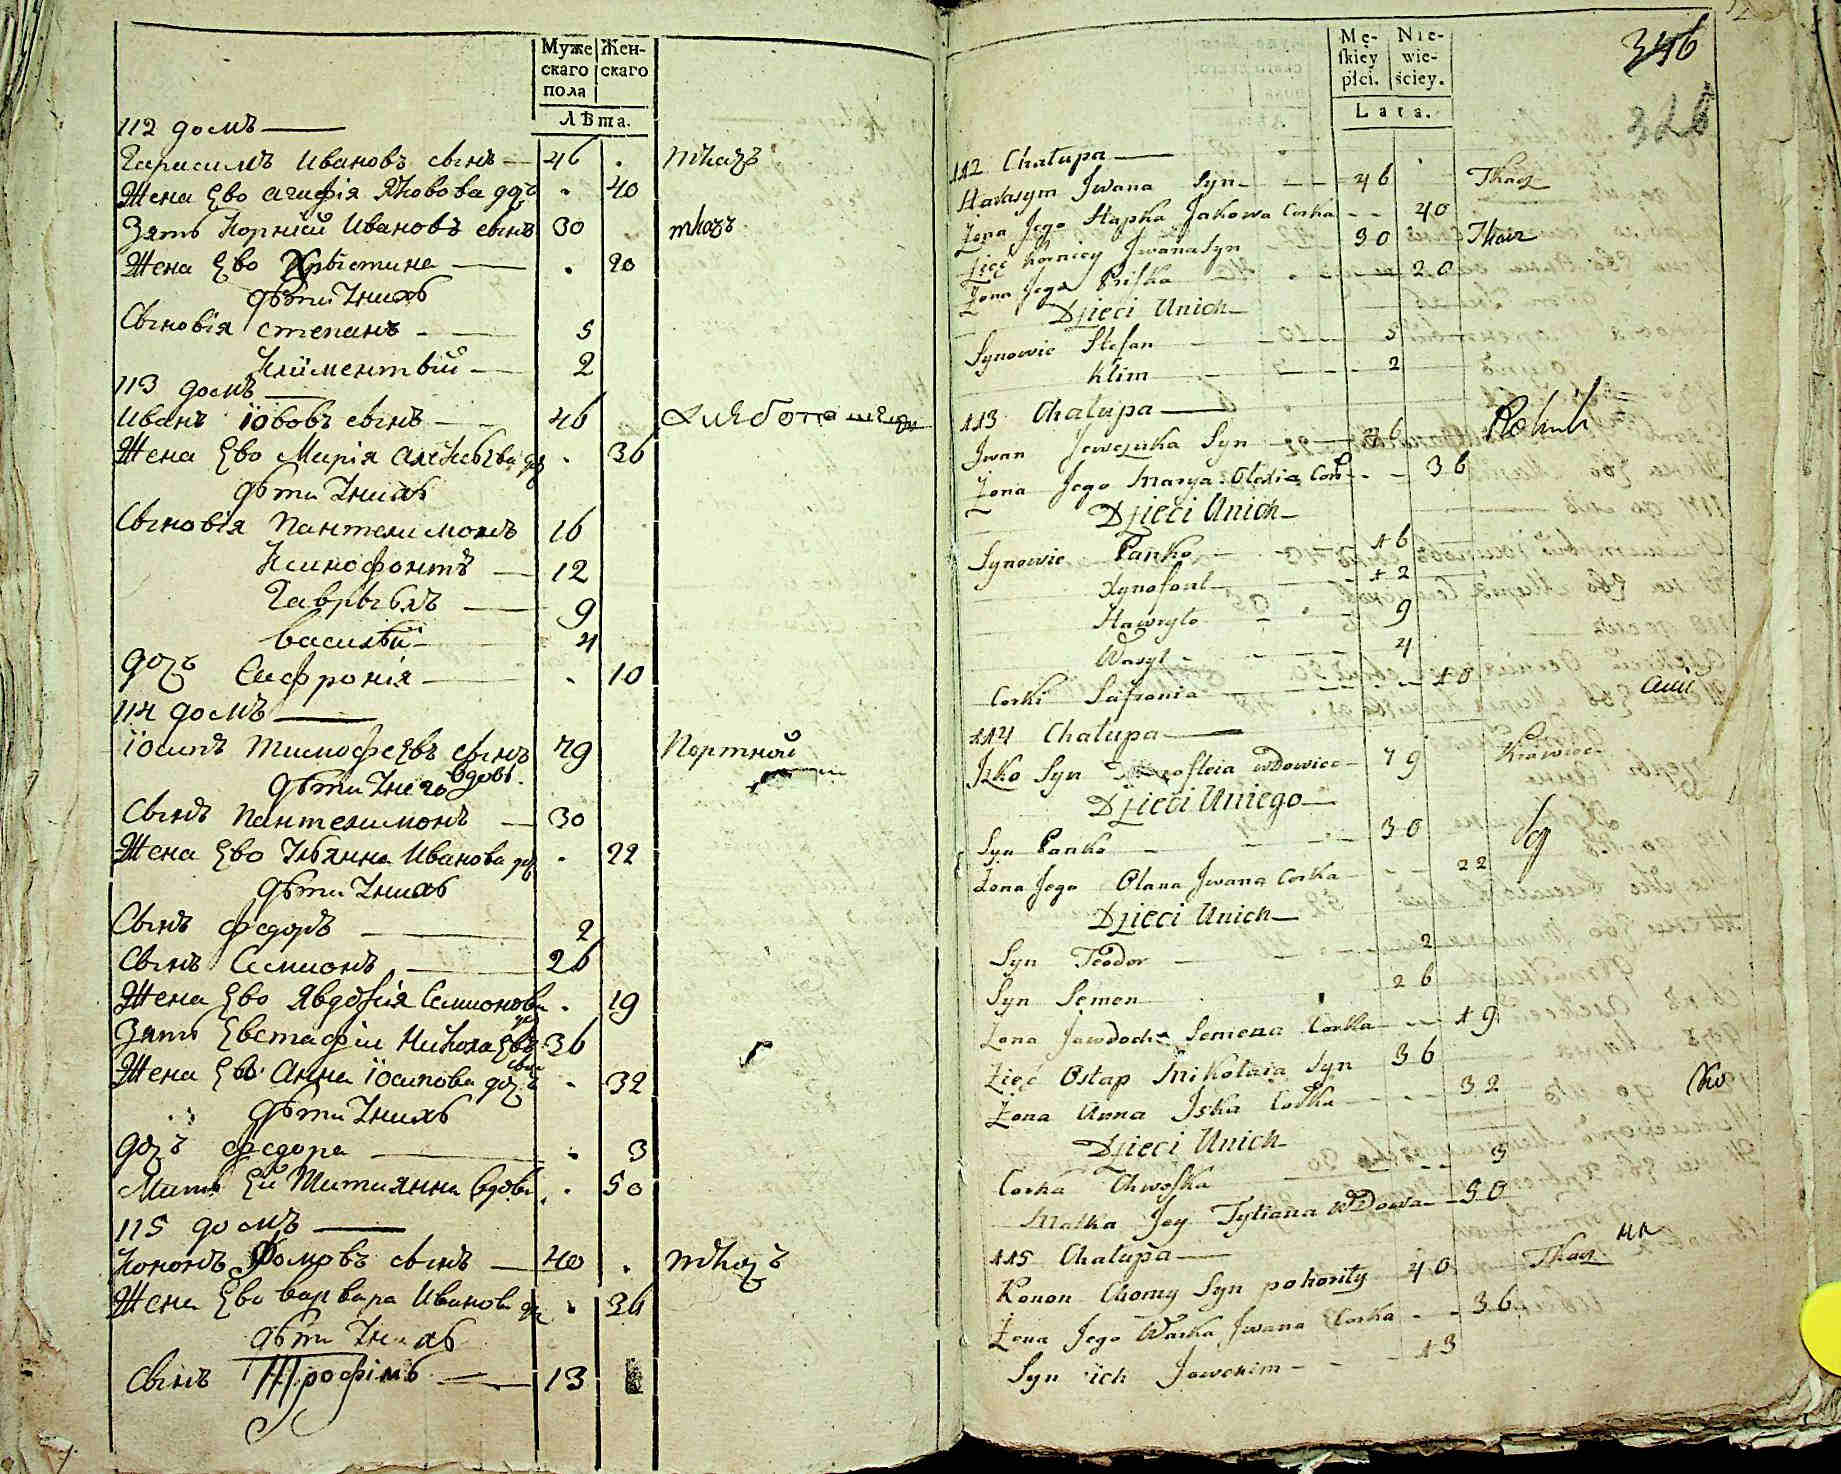 Муже Жен-
скаго скаго
пола
Лѣта.
112 домъ
Гарасимъ Ивановъ сынъ 46 ткачъ
Жена Ево Агафія Яковова дочъ 40
Зять Корнѣй Ивановъ сынъ 30 ткачъ
Жена Ево Хрыстина 20
дѣти Ихъ
Сыновія степанъ 5
Климентѣй 2
113 домъ
Иванъ Іововъ сынъ 46
Жена Ево Марія 36
дѣти Ихъ
Сыновія Пантелимонъ 16
Ксинофонтъ 12
Гаврыилъ 9
василѣй 4
дочъ Сафронія 10
114 домъ
Іосипъ Тимофеевъ сынъ вдовъ. 79 Портной
дѣти Унего
Сынъ Пантелимонъ 30
Жена Ево Улянна Иванова до 22
дѣти Ихъ
Сынъ федоръ 2
Сынъ Семионъ 26
Жена Ево Явдокія Семионова до 19
Зять Евстафіи Николаевъ сынъ 36
Жена Ево Анна Іосипова дочъ 32
дѣти Ихъ
дочъ федора 3
Мать Еи Татиянна вдова 50
115 домъ
Кононъ Хомовъ сынъ 40 ткачъ
Жена Ево варвара Иванова до 36
дѣти Ихъ
Сынъ Трофимъ 13
346
326
Mę- Nie-
skiey wie-
płci. ściey.
Lata.
112 Chałupa
Harasym Jwana Syn 46 Tkacz
Żona Jego Hapka Jakowa Corka 40
Zięć Korniey Jwana Syn 30 Tkacz
Żona Jego Priska 20
Dzieci Unich
Synowie Stefan 5
Klim 2
113 Chałupa
Jwan Syn 46
Żona Jego Marya Olexia Cor 36
Dzieci Unich
Synowie Panko 16
Xynofont 12
Hawryło 9
Wasyl 4
Corki Safronia 10
114 Chałupa
Jzko Syn wdowiec 79 Krawiec
Dzieci Uniego
Syn Panko 30
Żona Jego Olana Jwana Corka 22
Dzieci Unich
Syn Teodor 2
Syn Semen 26
Żona Jawdocha Semena Corka 19
Zięć Ostap Mikołaia Syn 36
Żona Anna Jska Corka 32
Dzieci Unich
Corka Chwoska 3
Matka Jey Tytiana Wdowa 50
115 Chałupa
Konon Chomy Syn pohoriły 40 Tkacz
Żona Jego Warka Jwana Corka 36
Syn ich 13